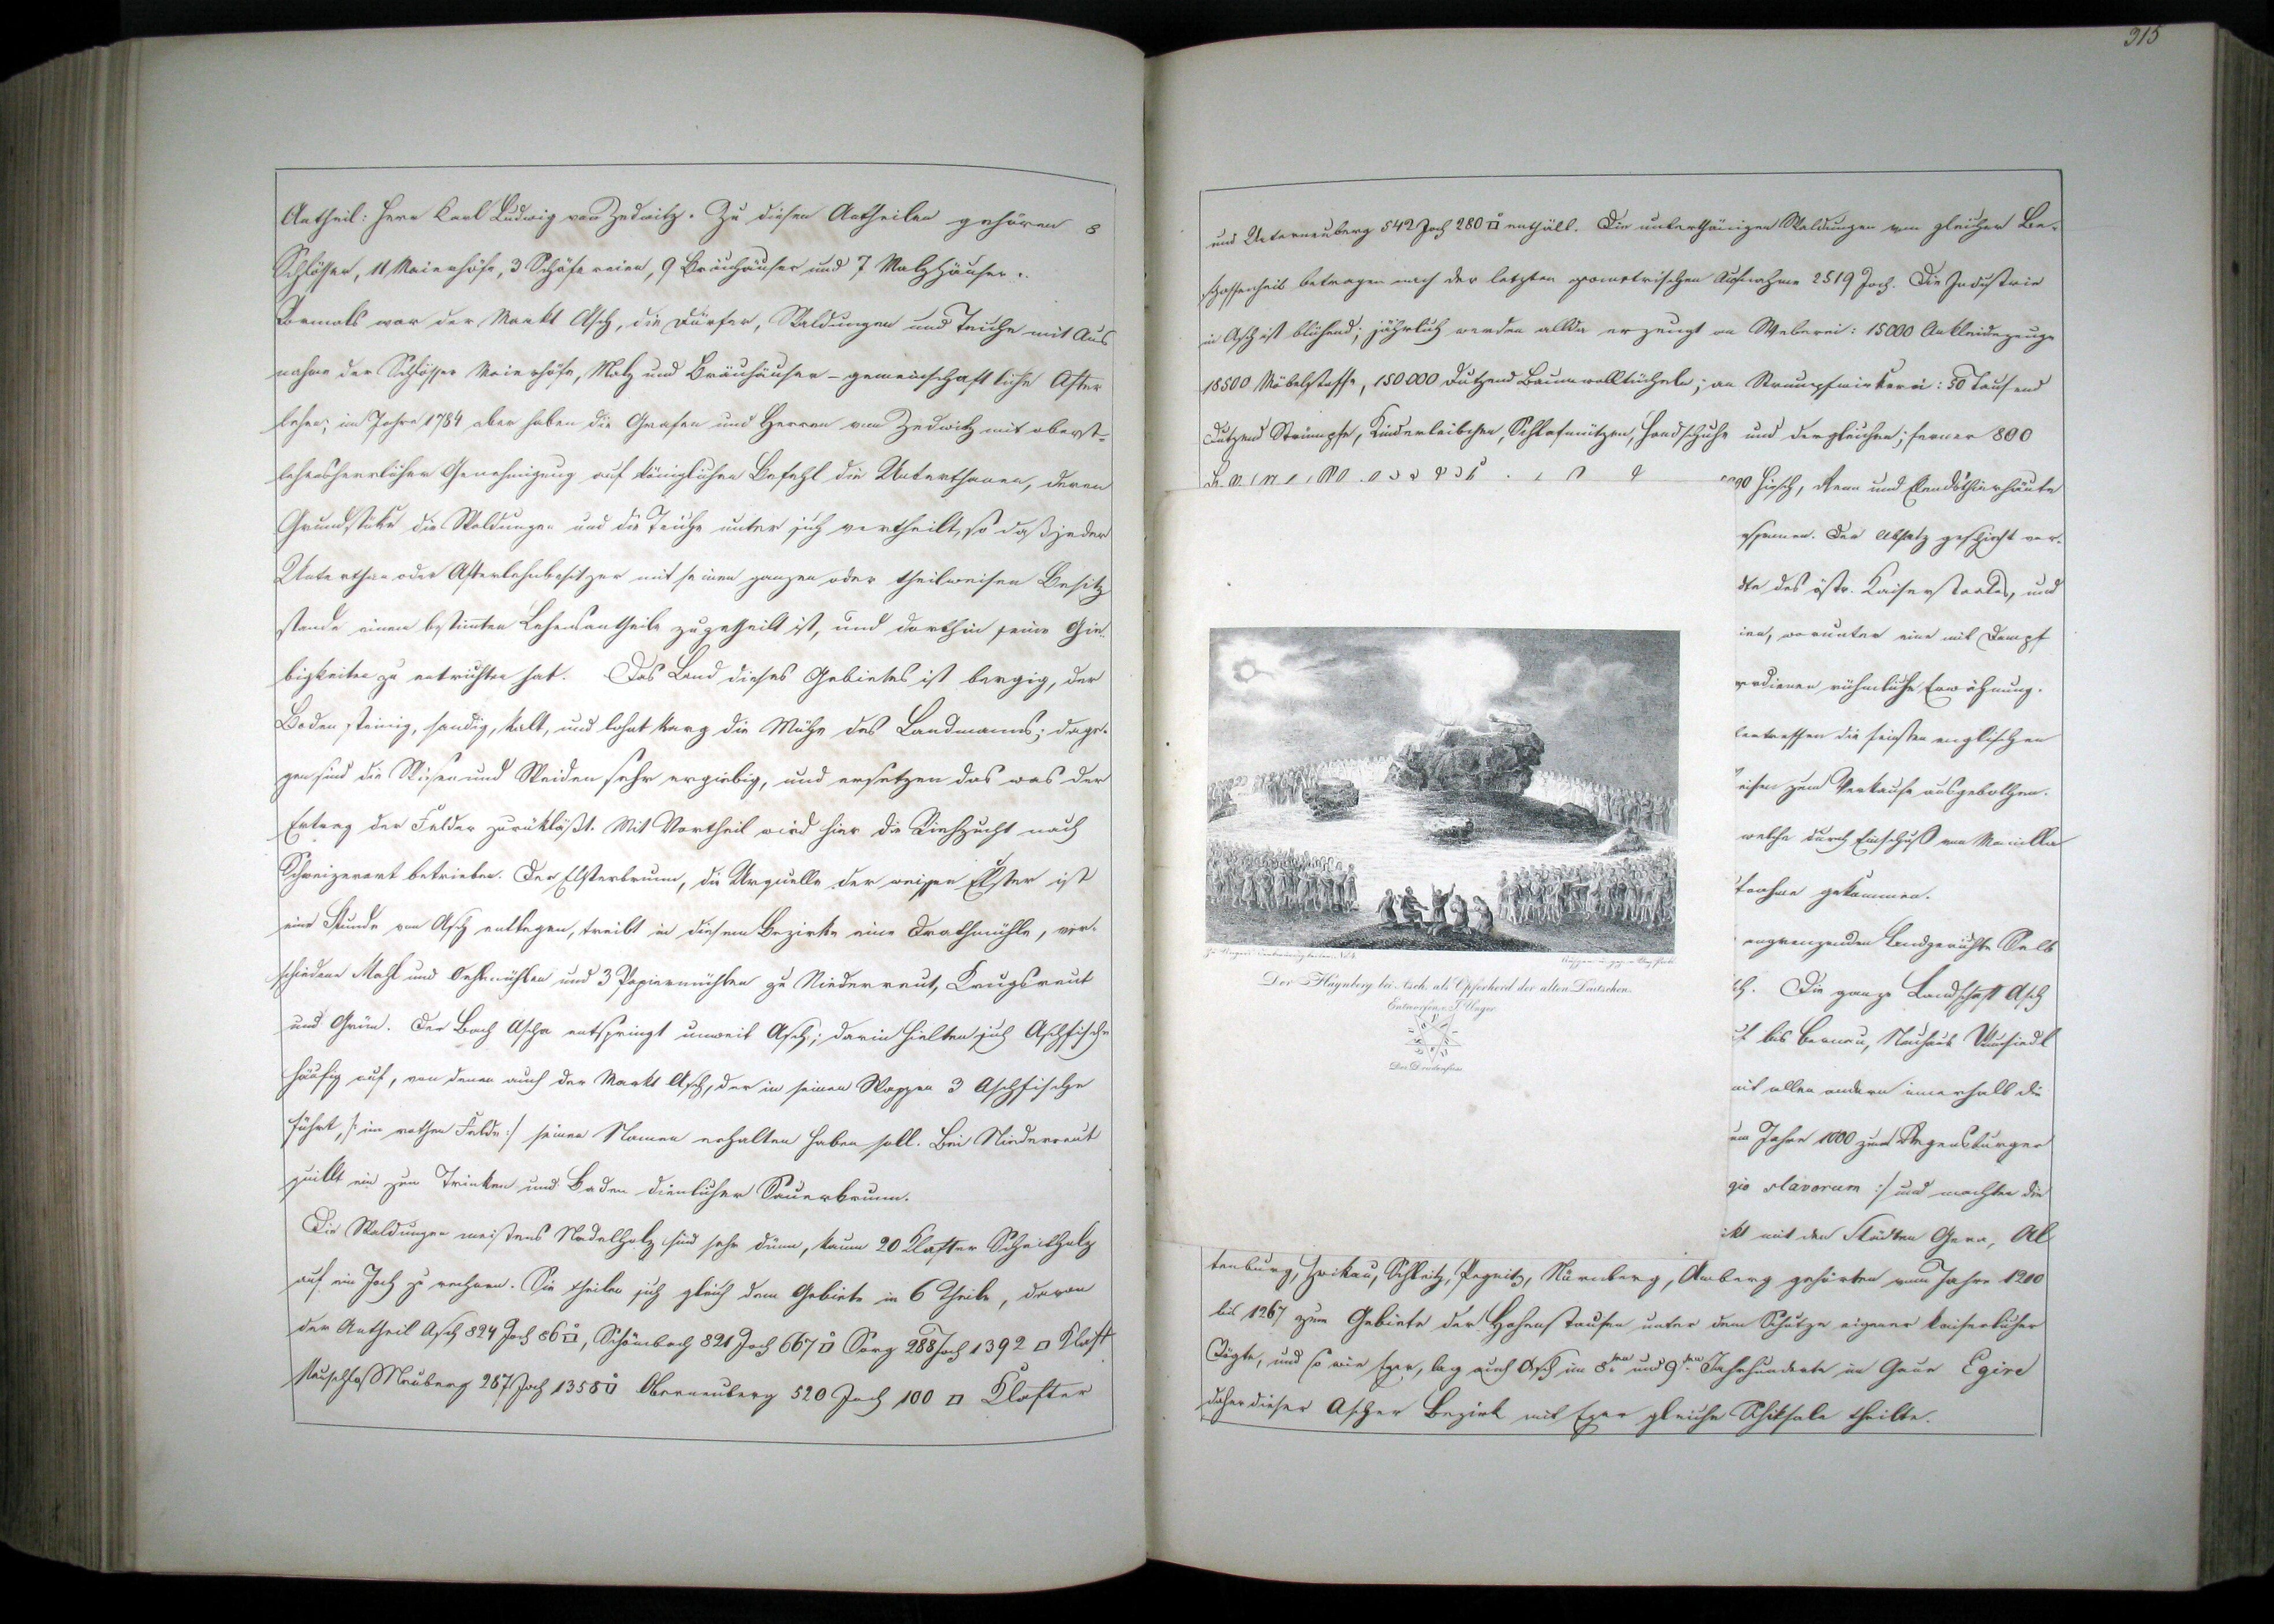 Antheil: Herr Karl Ludwig von Zedwitz. Zu diesen Antheilen gehören 8
Schlösser, 11 Maierhöfe, 3 Schäfereien, 9 Bräuhäuser und 7 Malzhäuser.
Vormals war der Markt Asch, die Dörfer, Waldungen und Teiche mit Aus
nahme der Schlösser Maierhöfe, Malz und Bräuhäuser – gemeinschaftliche After
lehen; im Jahre 1784 aber haben die Grafen und Herren von Zedwitz mit oberst-
lehensherrlicher Genehmigung auf königlichen Befehl die Unterthanen, deren
Grundstüke die Waldungen und die Teiche unter sich vertheilt, so daß jeder
Unterthan oder Afterlehnbesitzer mit seinen ganzen oder theilweisen Besitz
stande einem bestimten Lehensantheile zugetheilt ist, und dorthin seine Gie-
bigkeiten zu entrichten hat. Das Land dieses Gebietes ist bergig, der
Boden steinig, sandig, kalt, und lohnt karg die Mühe des Landmanns; dage-
gen sind die Wiesen und Weiden sehr ergiebig, und ersetzen das was der
Ertrag der Felder zurükläßt. Mit Vortheil wird hier die Viehzucht nach
Schweizerart betrieben. Der Elsterbrunn, die Urquelle der weißen Elster ist
eine Stunde von Asch entlegen, treibt in diesem Bezirke eine Drathmühle, ver-
schiedene Mahl und Oehlmühlen und 3 Papiermühlen zu Niederreut, Krugsreut
und Grün. Der Bach Ascha entspringt unweit Asch; darin hielten sich Aschfische
häufig auf, von denen auch der Markt Asch, der in seinen Wappen 3 Aschfische
führt, /: im rothen Felde :/ seinen Namen erhalten haben soll. Bei Niederreut
quillt ein zum Trinken und Baden dienlicher Sauerbrunn.
Die Waldungen meistens Nadelholz sind sehr dünn, kaum 20 Klafter Scheitholz
auf ein Joch zu rechnen. Sie theilen sich gleich dem Gebiete in 6 Theile, davon
der Antheil Asch 824 Joch 86 □°, Schönbach 821 Joch 667 □° Sorg 288 Joch 1392 □ Klaft
Neuschloß Neuberg 267 Joch 1358 □° Oberneuberg 520 Joch 100 □ Klafter
315
und Unterneuberg 542 Joch 280 □° enthält. Die unterthänigen Waldungen von gleicher Be-
schaffenheit betragen nach der letzten geometrischen Aufnahme 2519 Joch. Die Industrie
in Asch ist blühend; jährlich werden allda erzeugt an Weberei: 15000 Ankleidezeuge
18500 Möbelstoffe, 150000 Dutzend Baumwolltücheln; an Strumpfwirkerei: 50 Tausend
Dutzend Strümpfe, Kinderleibchen, Schlafmützen, Handschuhe und dergleichen; ferner 800
Hirsch, Renn und Elendsthierhäute
Der Absatz geschieht ver-
des östr. Kaiserstaates, und
worunter eine mit Dampf
verdienen rühmliche Erwähnung.
die feinsten englischen
zum Verkaufe ausgebothen.
welche durch Einschuß von
gekommen.
angrenzenden Landgerichte Selb
Die ganze Landschaft Asch
bis Bernau, Neuhaus
mit allen andern innerhalb die
Jahre 1000 zum Regensburger
gio slavorum :/ und machten die
mit den Städten Gera, Al
Der Haynberg bei Asch, als Opferherd der alten Deutschen.
Entworfen v. J. Unger.
Der Drudenfuss.
tenburg, Zwikau, Schleitz, Pegnitz, Nürnberg, Amberg gehörten vom Jahre 1210
bis 1267 zum Gebiete der Hohenstaufen unter dem Schutze eigener kaiserlicher
Vögte, und so wie Eger, lag auch Asch im 8ten und 9ten Jahrhunderte im Gaue Egire
daher dieser Ascher Bezirk mit Eger gleiche Schiksale theilte.